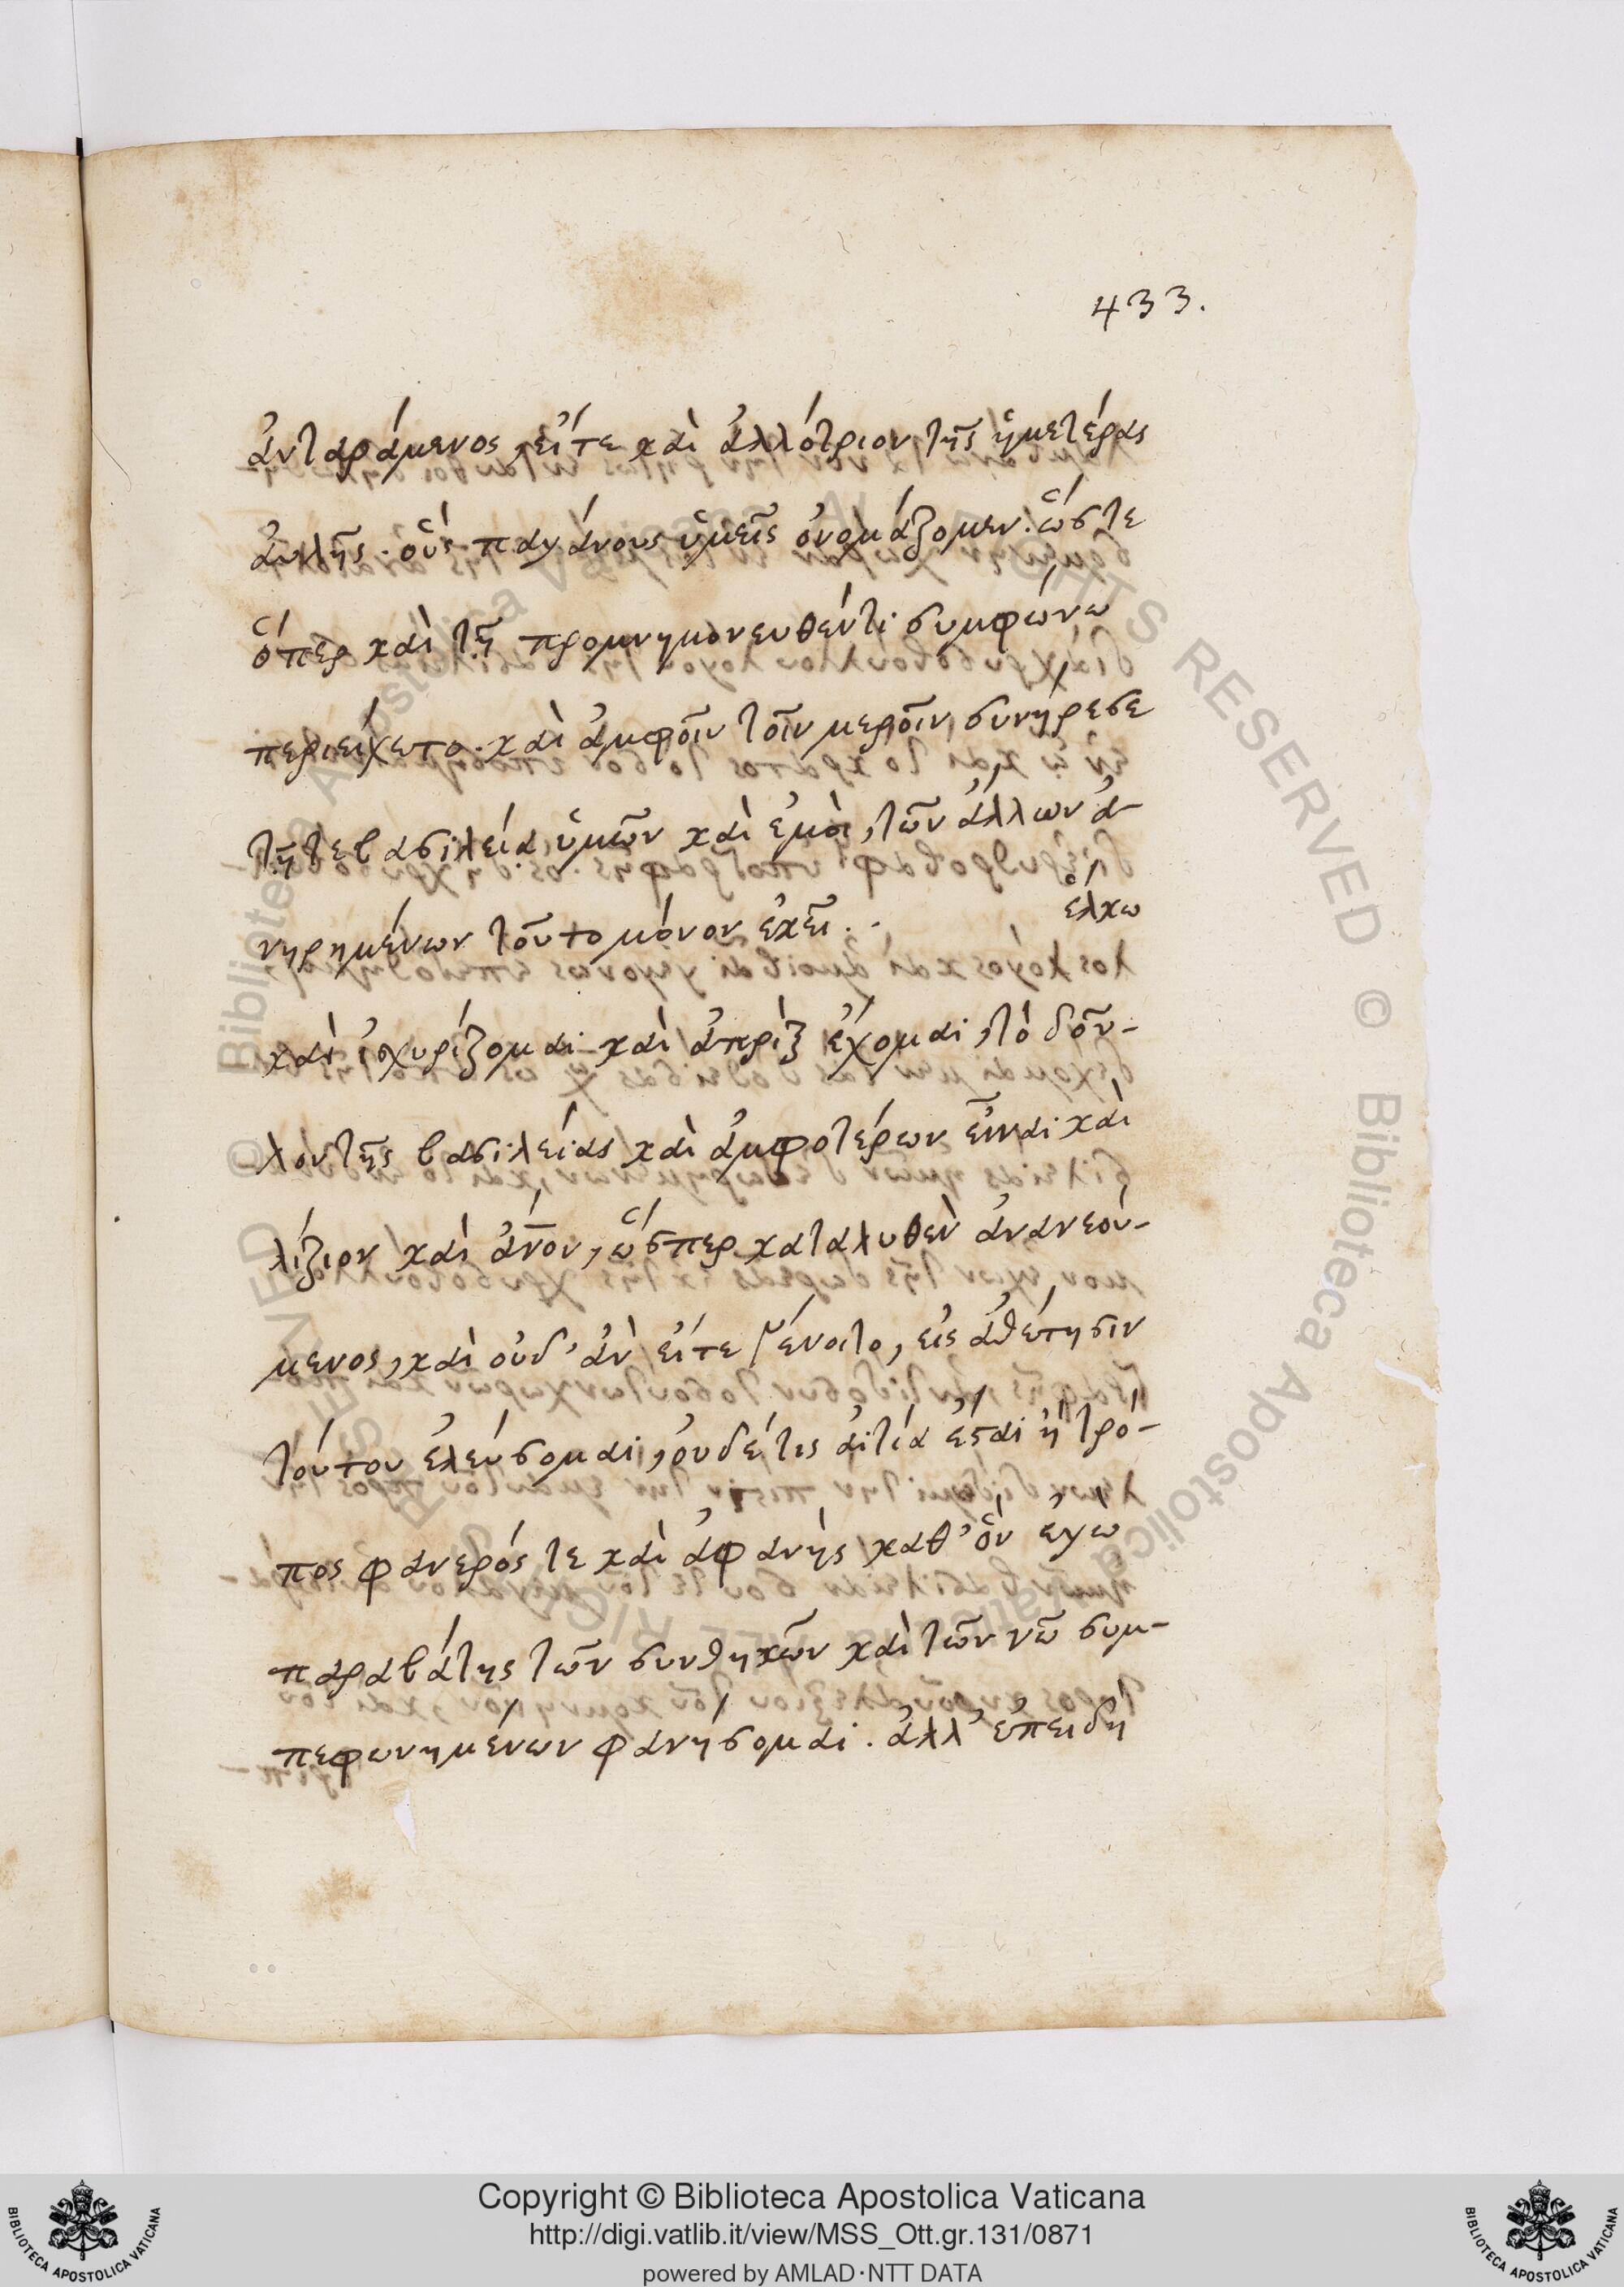 433.
ἀνταράμενος, εἴτε καὶ ἀλλότριον τῆς ἡμετέρας
ἀυλῆς. οὓς παγάνους ὑμεῖς ὀνομάζομεν. ὥστε
ὅπερ καὶ τῇ προμνημονευθέντι συμφώνω
περιείχετο. καὶ ἀμφοῖν τοῖν μεροῖν συνήρεσε
τῇ τε βασιλεία ὑμῶν καὶ ἐμοὶ, τῶν ἄλλων ἀ-
νηρημένων τοῦτο μόνον ἐκεῖ..
ἕλκω
καὶ ἰσχυρίζομαι καὶ ἀπρὶξ ἔχομαι, τὸ δοῦ-
λον τῆς βασιλείας καὶ ἀμφοτέρων εἶναι καὶ
λίζιον καὶ ἄνον, ὥσπερ καταλυθὲν ἀνανεού-
μενος, καὶ οὐδ' ἂν εἴτε γένοιτο, εἰς ἀθέτησιν
τούτου ἐλεύσομαι, ὀυδέ τις ἀιτία ἔσται ἢ τρό-
πος φανερός τε καὶ ἀφανὴς καθ' ὃν ἐγὼ
παραβάτης τῶν συνθηκῶν καὶ τῶν νῦ συμ-
πεφωνημένων φανήσομαι. ἀλλ' ἐπειδὴ
Copyright © Biblioteca Apostolica Vaticana
http://digi.vatlib.it/view/MSS_Ott.gr.131/0871
powered by AMLAD·NTT DATA
BIBLIOTECA APOSTOLICA VATICANA
BIBLIOTECA APOSTOLICA VATICANA